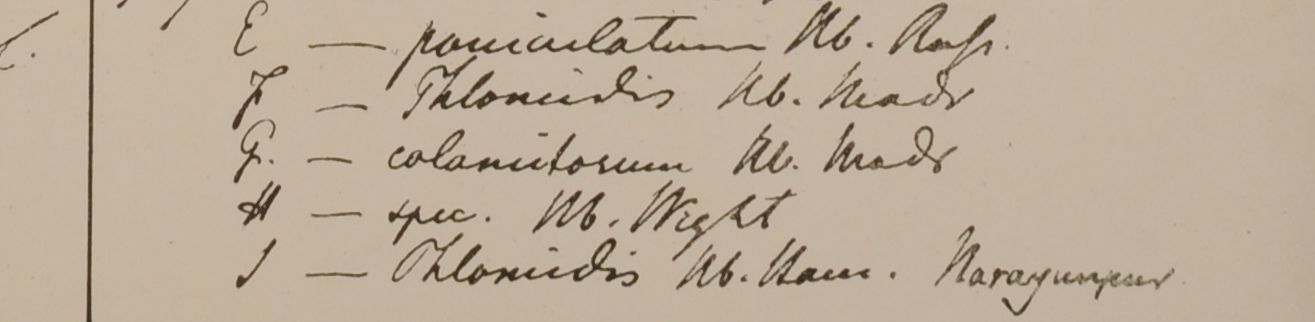 E — paniculatum Hb. Russ.
F — Phlomidis Hb. Madr
G. — calamitosum Hb. Madr
H — spec. Hb. Wight
I — Phlomidis Hb. Ham. Narayunpur